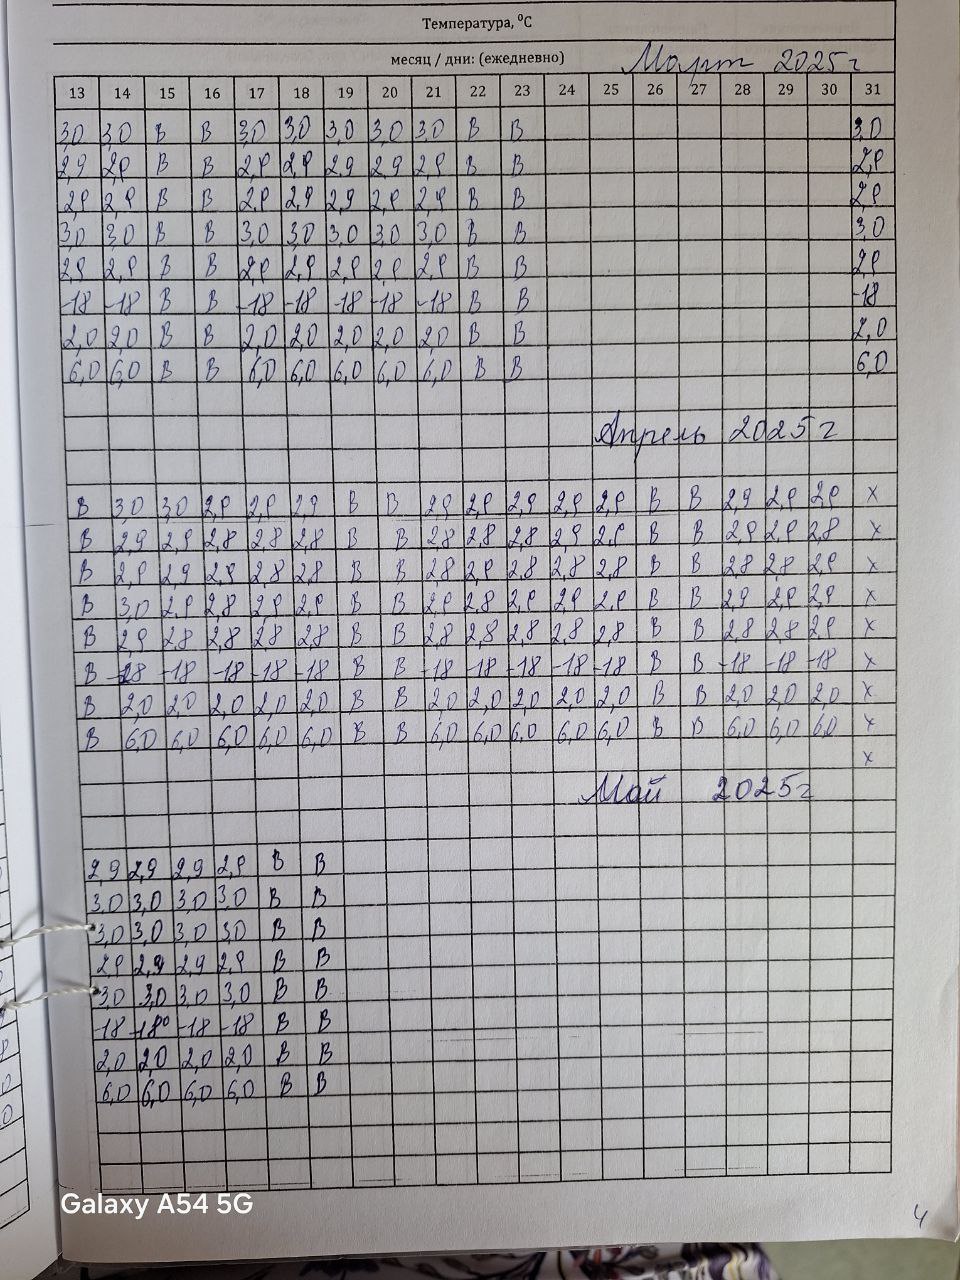 Температура, ⁰С
месяц / дни: (ежедневно) Март 2025г
13 14 15 16 17 18 19 20 21 22 23 24 25 26 27 28 29 30 31
3,0 3,0 В В 3,0 3,0 3,0 3,0 3,0 В В 3,0
2,9 2,9 В В 2,9 2,9 2,9 2,9 2,9 В В 2,9
2,9 2,9 В В 2,9 2,9 2,9 2,9 2,9 В В 2,9
3,0 3,0 В В 3,0 3,0 3,0 3,0 3,0 В В 3,0
2,9 2,9 В В 2,9 2,9 2,9 2,9 2,9 В В 2,9
-18 -18 В В -18 -18 -18 -18 -18 В В -18
2,0 2,0 В В 2,0 2,0 2,0 2,0 2,0 В В 2,0
6,0 6,0 В В 6,0 6,0 6,0 6,0 6,0 В В 6,0
Апрель 2025г
В 3,0 3,0 2,9 2,9 2,9 В В 2,9 2,9 2,9 2,9 2,9 В В 2,9 2,9 2,9 х
В 2,9 2,9 2,8 2,8 2,8 В В 2,8 2,8 2,8 2,9 2,9 В В 2,9 2,9 2,8 х
В 2,9 2,9 2,9 2,8 2,8 В В 2,8 2,9 2,8 2,8 2,8 В В 2,8 2,8 2,9 х
В 3,0 2,9 2,8 2,9 2,9 В В 2,9 2,8 2,9 2,9 2,9 В В 2,9 2,9 2,9 х
В 2,9 2,8 2,8 2,8 2,8 В В 2,8 2,8 2,8 2,8 2,8 В В 2,8 2,8 2,9 х
В -18 -18 -18 -18 -18 В В -18 -18 -18 -18 -18 В В -18 -18 -18 х
В 2,0 2,0 2,0 2,0 2,0 В В 2,0 2,0 2,0 2,0 2,0 В В 2,0 2,0 2,0 х
В 6,0 6,0 6,0 6,0 6,0 В В 6,0 6,0 6,0 6,0 6,0 В В 6,0 6,0 6,0 х
х
Май 2025г
2,9 2,9 2,9 2,9 В В
3,0 3,0 3,0 3,0 В В
3,0 3,0 3,0 3,0 В В
2,9 2,9 2,9 2,9 В В
3,0 3,0 3,0 3,0 В В
-18 -18⁰ -18 -18 В В
2,0 2,0 2,0 2,0 В В
6,0 6,0 6,0 6,0 В В
Galaxy A54 5G
4